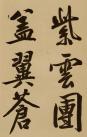 紫雲團
蓋翼蒼